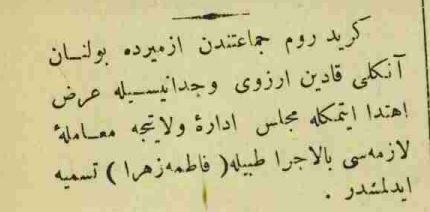 كريد روم جماعتندن ازميرده بولنان
آنكلى قادين ارزوى وجدانيسيله عرض
اهتدا ايتمكله مجلس ادارۀ ولايتجه معاملۀ
لازمه‌سى بالاجرا طبيله ( فاطمه زهرا ) تسميه
ايدلمشدر .